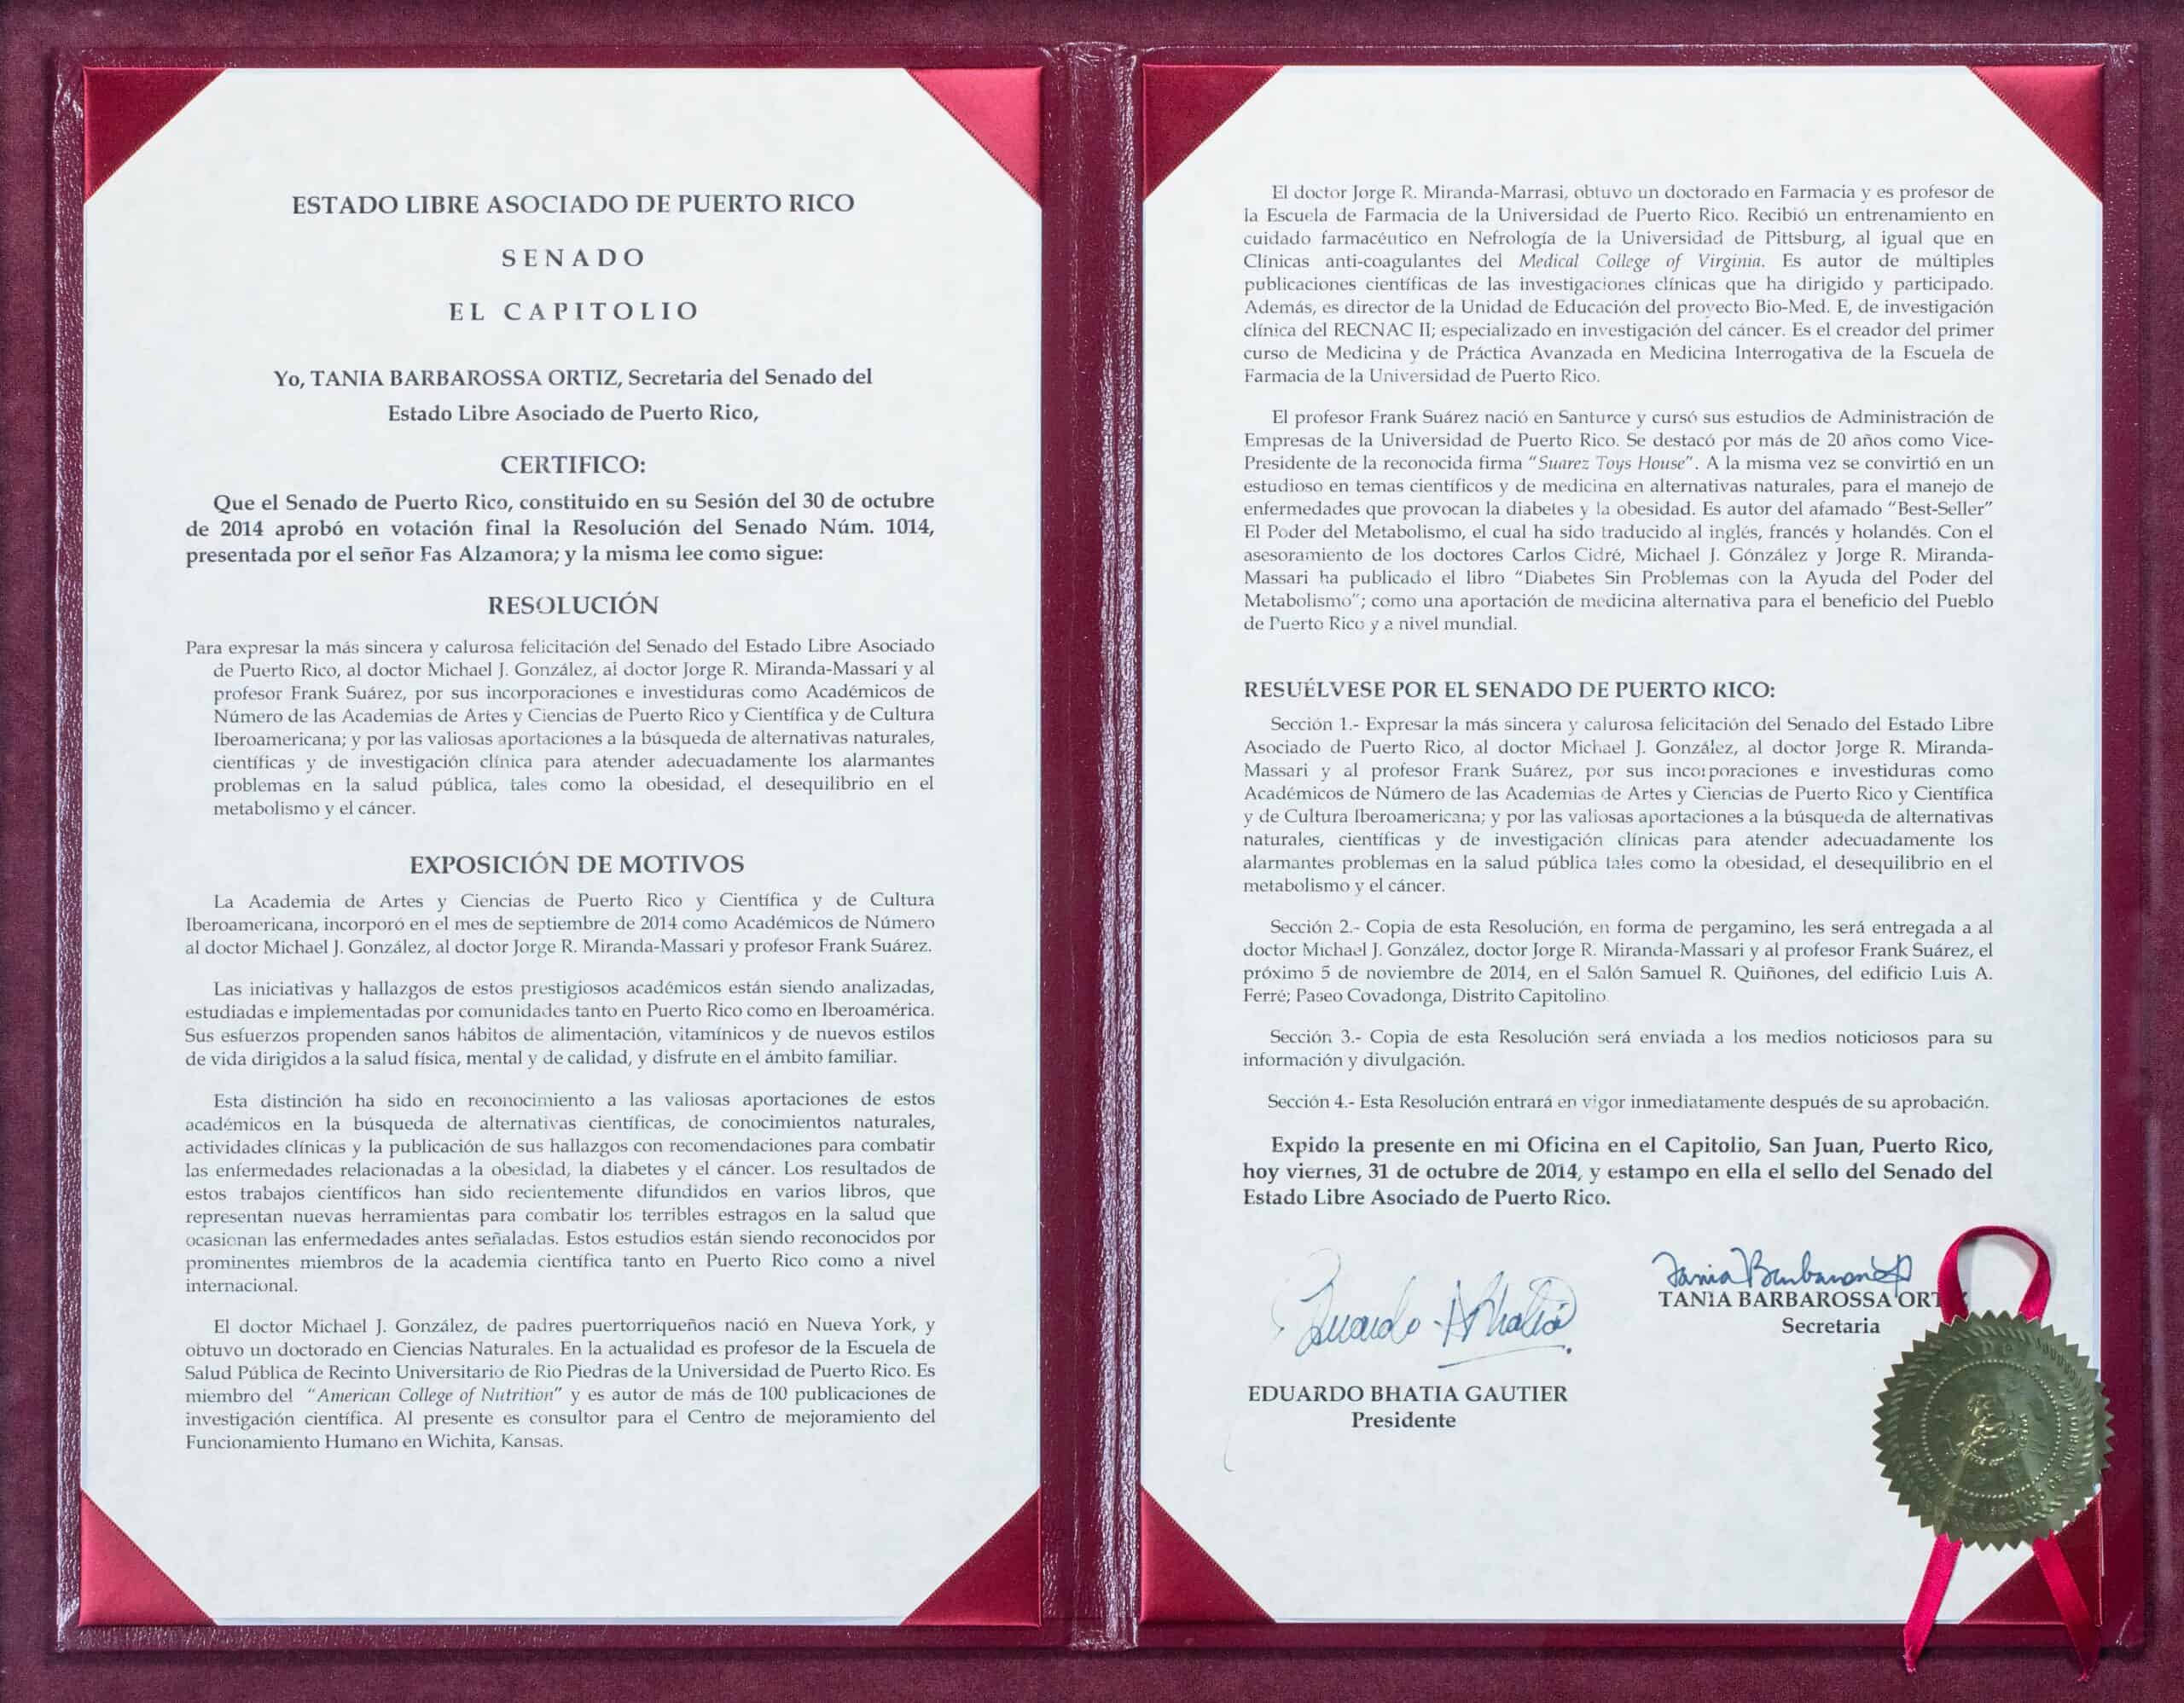 ESTADO LIBRE ASOCIADO DE PUERTO RICO
SENADO
EL CAPITOLIO
Yo, TANIA BARBAROSSA ORTIZ, Secretaria del Senado del
Estado Libre Asociado de Puerto Rico,
CERTIFICO:
Que el Senado de Puerto Rico, constituido en su Sesión del 30 de octubre
de 2014 aprobó en votación final la Resolución del Senado Núm. 1014,
presentada por el señor Fas Alzamora; y la misma lee como sigue:
RESOLUCIÓN
Para expresar la más sincera y calurosa felicitación del Senado del Estado Libre Asociado
de Puerto Rico, al doctor Michael J. González, al doctor Jorge R. Miranda-Massari y al
profesor Frank Suárez, por sus incorporaciones e investiduras como Académicos de
Número de las Academias de Artes y Ciencias de Puerto Rico y Científica y de Cultura
Iberoamericana; y por las valiosas aportaciones a la búsqueda de alternativas naturales,
científicas y de investigación clínica para atender adecuadamente los alarmantes
problemas en la salud pública, tales como la obesidad, el desequilibrio en el
metabolismo y el cáncer.
EXPOSICIÓN DE MOTIVOS
La Academia de Artes y Ciencias de Puerto Rico y Científica y de Cultura
Iberoamericana, incorporó en el mes de septiembre de 2014 como Académicos de Número
al doctor Michael J. González, al doctor Jorge R. Miranda-Massari y profesor Frank Suárez.
Las iniciativas y hallazgos de estos prestigiosos académicos están siendo analizadas,
estudiadas e implementadas por comunidades tanto en Puerto Rico como en Iberoamérica.
Sus esfuerzos propenden sanos hábitos de alimentación, vitamínicos y de nuevos estilos
de vida dirigidos a la salud física, mental y de calidad, y disfrute en el ámbito familiar.
Esta distinción ha sido en reconocimiento a las valiosas aportaciones de estos
académicos en la búsqueda de alternativas científicas, de conocimientos naturales,
actividades clínicas y la publicación de sus hallazgos con recomendaciones para combatir
las enfermedades relacionadas a la obesidad, la diabetes y el cáncer. Los resultados de
estos trabajos científicos han sido recientemente difundidos en varios libros, que
representan nuevas herramientas para combatir los terribles estragos en la salud que
ocasionan las enfermedades antes señaladas. Estos estudios están siendo reconocidos por
prominentes miembros de la academia científica tanto en Puerto Rico como a nivel
internacional.
El doctor Michael J. González, de padres puertorriqueños nació en Nueva York, y
obtuvo un doctorado en Ciencias Naturales. En la actualidad es profesor de la Escuela de
Salud Pública de Recinto Universitario de Rio Piedras de la Universidad de Puerto Rico. Es
miembro del "American College of Nutrition" y es autor de más de 100 publicaciones de
investigación científica. Al presente es consultor para el Centro de mejoramiento del
Funcionamiento Humano en Wichita, Kansas.
El doctor Jorge R. Miranda-Marrasi, obtuvo un doctorado en Farmacia y es profesor de
la Escuela de Farmacia de la Universidad de Puerto Rico. Recibió un entrenamiento en
cuidado farmacéutico en Nefrología de la Universidad de Pittsburg, al igual que en
Clínicas anti-coagulantes del Medical College of Virginia. Es autor de múltiples
publicaciones científicas de las investigaciones clínicas que ha dirigido y participado.
Además, es director de la Unidad de Educación del proyecto Bio-Med. E, de investigación
clínica del RECNAC II; especializado en investigación del cáncer. Es el creador del primer
curso de Medicina y de Práctica Avanzada en Medicina Interrogativa de la Escuela de
Farmacia de la Universidad de Puerto Rico.
El profesor Frank Suárez nació en Santurce y cursó sus estudios de Administración de
Empresas de la Universidad de Puerto Rico. Se destacó por más de 20 años como Vice-
Presidente de la reconocida firma "Suarez Toys House". A la misma vez se convirtió en un
estudioso en temas científicos y de medicina en alternativas naturales, para el manejo de
enfermedades que provocan la diabetes y la obesidad. Es autor del afamado "Best-Seller"
El Poder del Metabolismo, el cual ha sido traducido al inglés, francés y holandés. Con el
asesoramiento de los doctores Carlos Cidré, Michael J. Gónzález y Jorge R. Miranda-
Massari ha publicado el libro "Diabetes Sin Problemas con la Ayuda del Poder del
Metabolismo"; como una aportación de medicina alternativa para el beneficio del Pueblo
de Puerto Rico y a nivel mundial.
RESUÉLVESE POR EL SENADO DE PUERTO RICO:
Sección 1.- Expresar la más sincera y calurosa felicitación del Senado del Estado Libre
Asociado de Puerto Rico, al doctor Michael J. González, al doctor Jorge R. Miranda-
Massari y al profesor Frank Suárez, por sus incorporaciones e investiduras como
Académicos de Número de las Academias de Artes y Ciencias de Puerto Rico y Científica
y de Cultura Iberoamericana; y por las valiosas aportaciones a la búsqueda de alternativas
naturales, científicas y de investigación clínicas para atender adecuadamente los
alarmantes problemas en la salud pública tales como la obesidad, el desequilibrio en el
metabolismo y el cáncer.
Sección 2.- Copia de esta Resolución, en forma de pergamino, les será entregada a al
doctor Michael J. González, doctor Jorge R. Miranda-Massari y al profesor Frank Suárez, el
próximo 5 de noviembre de 2014, en el Salón Samuel R. Quiñones, del edificio Luis A.
Ferré; Paseo Covadonga, Distrito Capitolino.
Sección 3.- Copia de esta Resolución será enviada a los medios noticiosos para su
información y divulgación.
Sección 4.- Esta Resolución entrará en vigor inmediatamente después de su aprobación.
Expido la presente en mi Oficina en el Capitolio, San Juan, Puerto Rico,
hoy viernes, 31 de octubre de 2014, y estampo en ella el sello del Senado del
Estado Libre Asociado de Puerto Rico.
Eduardo Bhatia
EDUARDO BHATIA GAUTIER
Presidente
Tania Barbarossa
TANIA BARBAROSSA ORT
Secretaria